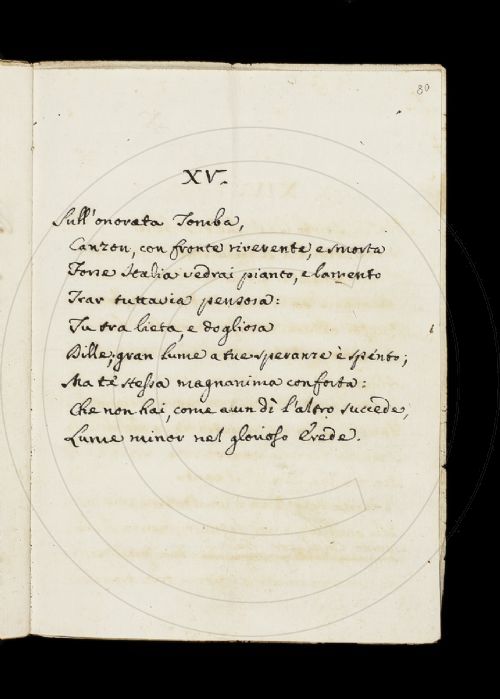 80
XV.
Sull'onorata Tomba,
Canzon, con fronte riverente, e smorta
Forse Italia vedrai pianto, e lamento
Trar tuttavia pensosa:
Tu tra lieta, e dogliosa
Dille, gran Lume a tue speranze è spento;
Ma te stessa magnanima conforta:
Che non hai, come a un dì l'altro succede,
Lume minor nel glorioso Erede.